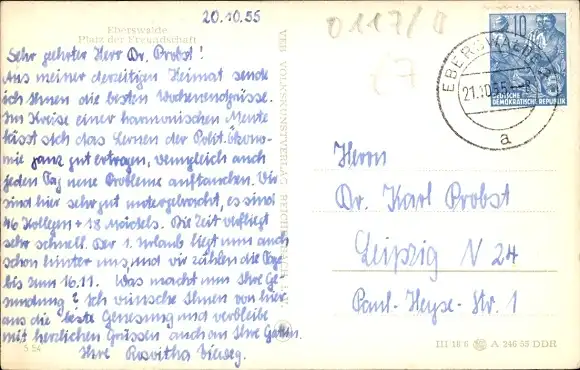 20.10.55
Eberswalde
Platz der Freundschaft
Sehr geehrter Herr Dr. Probst!
Aus meiner derzeitigen Heimat sende
ich Ihnen die besten Wochenendgrüsse.
Im Kreise einer harmonischen Meute
lässt sich das Lernen der Polit. Ökono-
mie ganz gut ertragen, wenngleich auch
jeden Tag neue Probleme auftauchen. Wir
sind hier sehr gut untergebracht, es sind
46 Kollegen + 18 Mädels. Die Zeit verfliegt
sehr schnell. Der 1. Urlaub liegt nun auch
schon hinter uns, und wir zählen die Tage
bis zum 16.11. Was macht nun Ihre Ge-
sundung? Ich wünsche Ihnen von hier
aus die beste Genesung und verbleibe
mit herzlichen Grüssen auch an Ihre Gattin.
Ihre Roswitha
5 54
VEB VOLKSKUNSTVERLAG REICHENBACH
0117/
EBERSWALDE
21.10.55
a
10
DEUTSCHE
DEMOKRATISCHE REPUBLIK
Herrn
Dr. Karl Probst
Leipzig N 24
Paul-Heyse-Str. 1
III 18 6 A 246 55 DDR